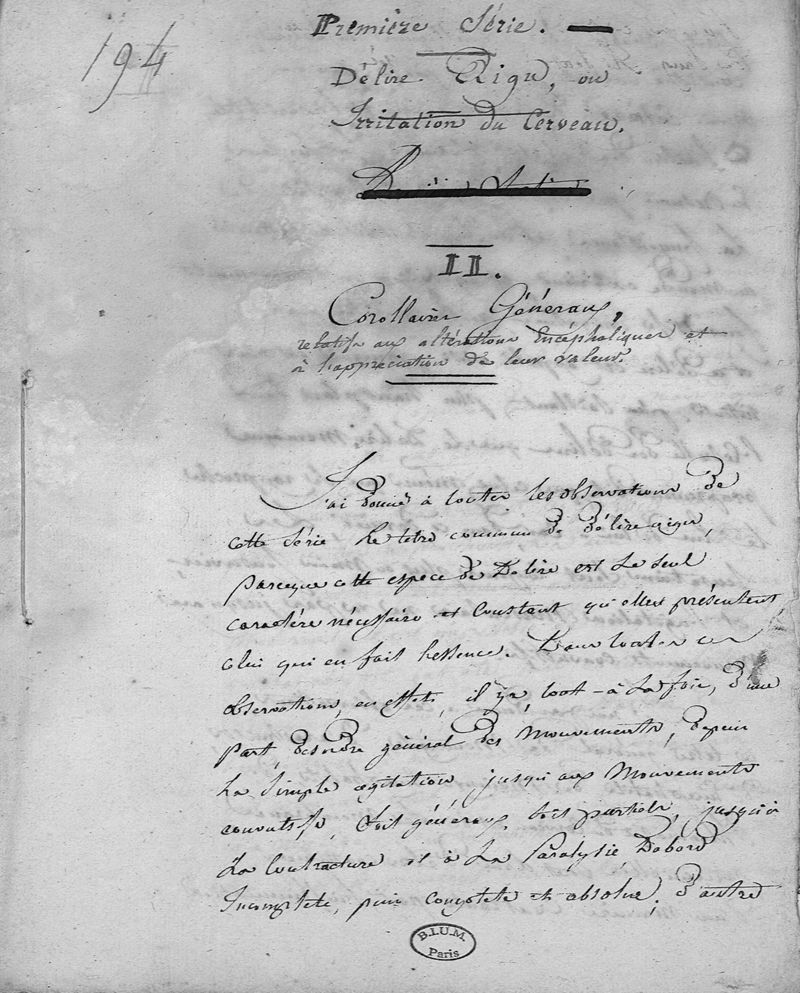 194
Première Série.
Délire Aigu, ou
Irritation du Cerveau.
II.
Corollaires Généraux,
relatifs aux altérations Encéphaliques et
à l'appréciation de leur valeur.
J'ai donné à toutes les observations de
cette série le titre commun de délire aigu,
parceque cette espece de Délire est le seul
caractère nécessaire et constant qu'elles présentent,
celui qui en fait l'essence. Dans toutes ces
observations, en effet, il y a tout-à-la fois, d'une
part, désordre général des mouvements, depuis
la simple agitation jusqu'aux mouvements
convulsifs, soit généraux, soit partiels, jusqu'à
la Contracture et à la Paralysie, Dabord
Incomplete, puis complete et absolue, d'autre
B.I.U.M.
Paris